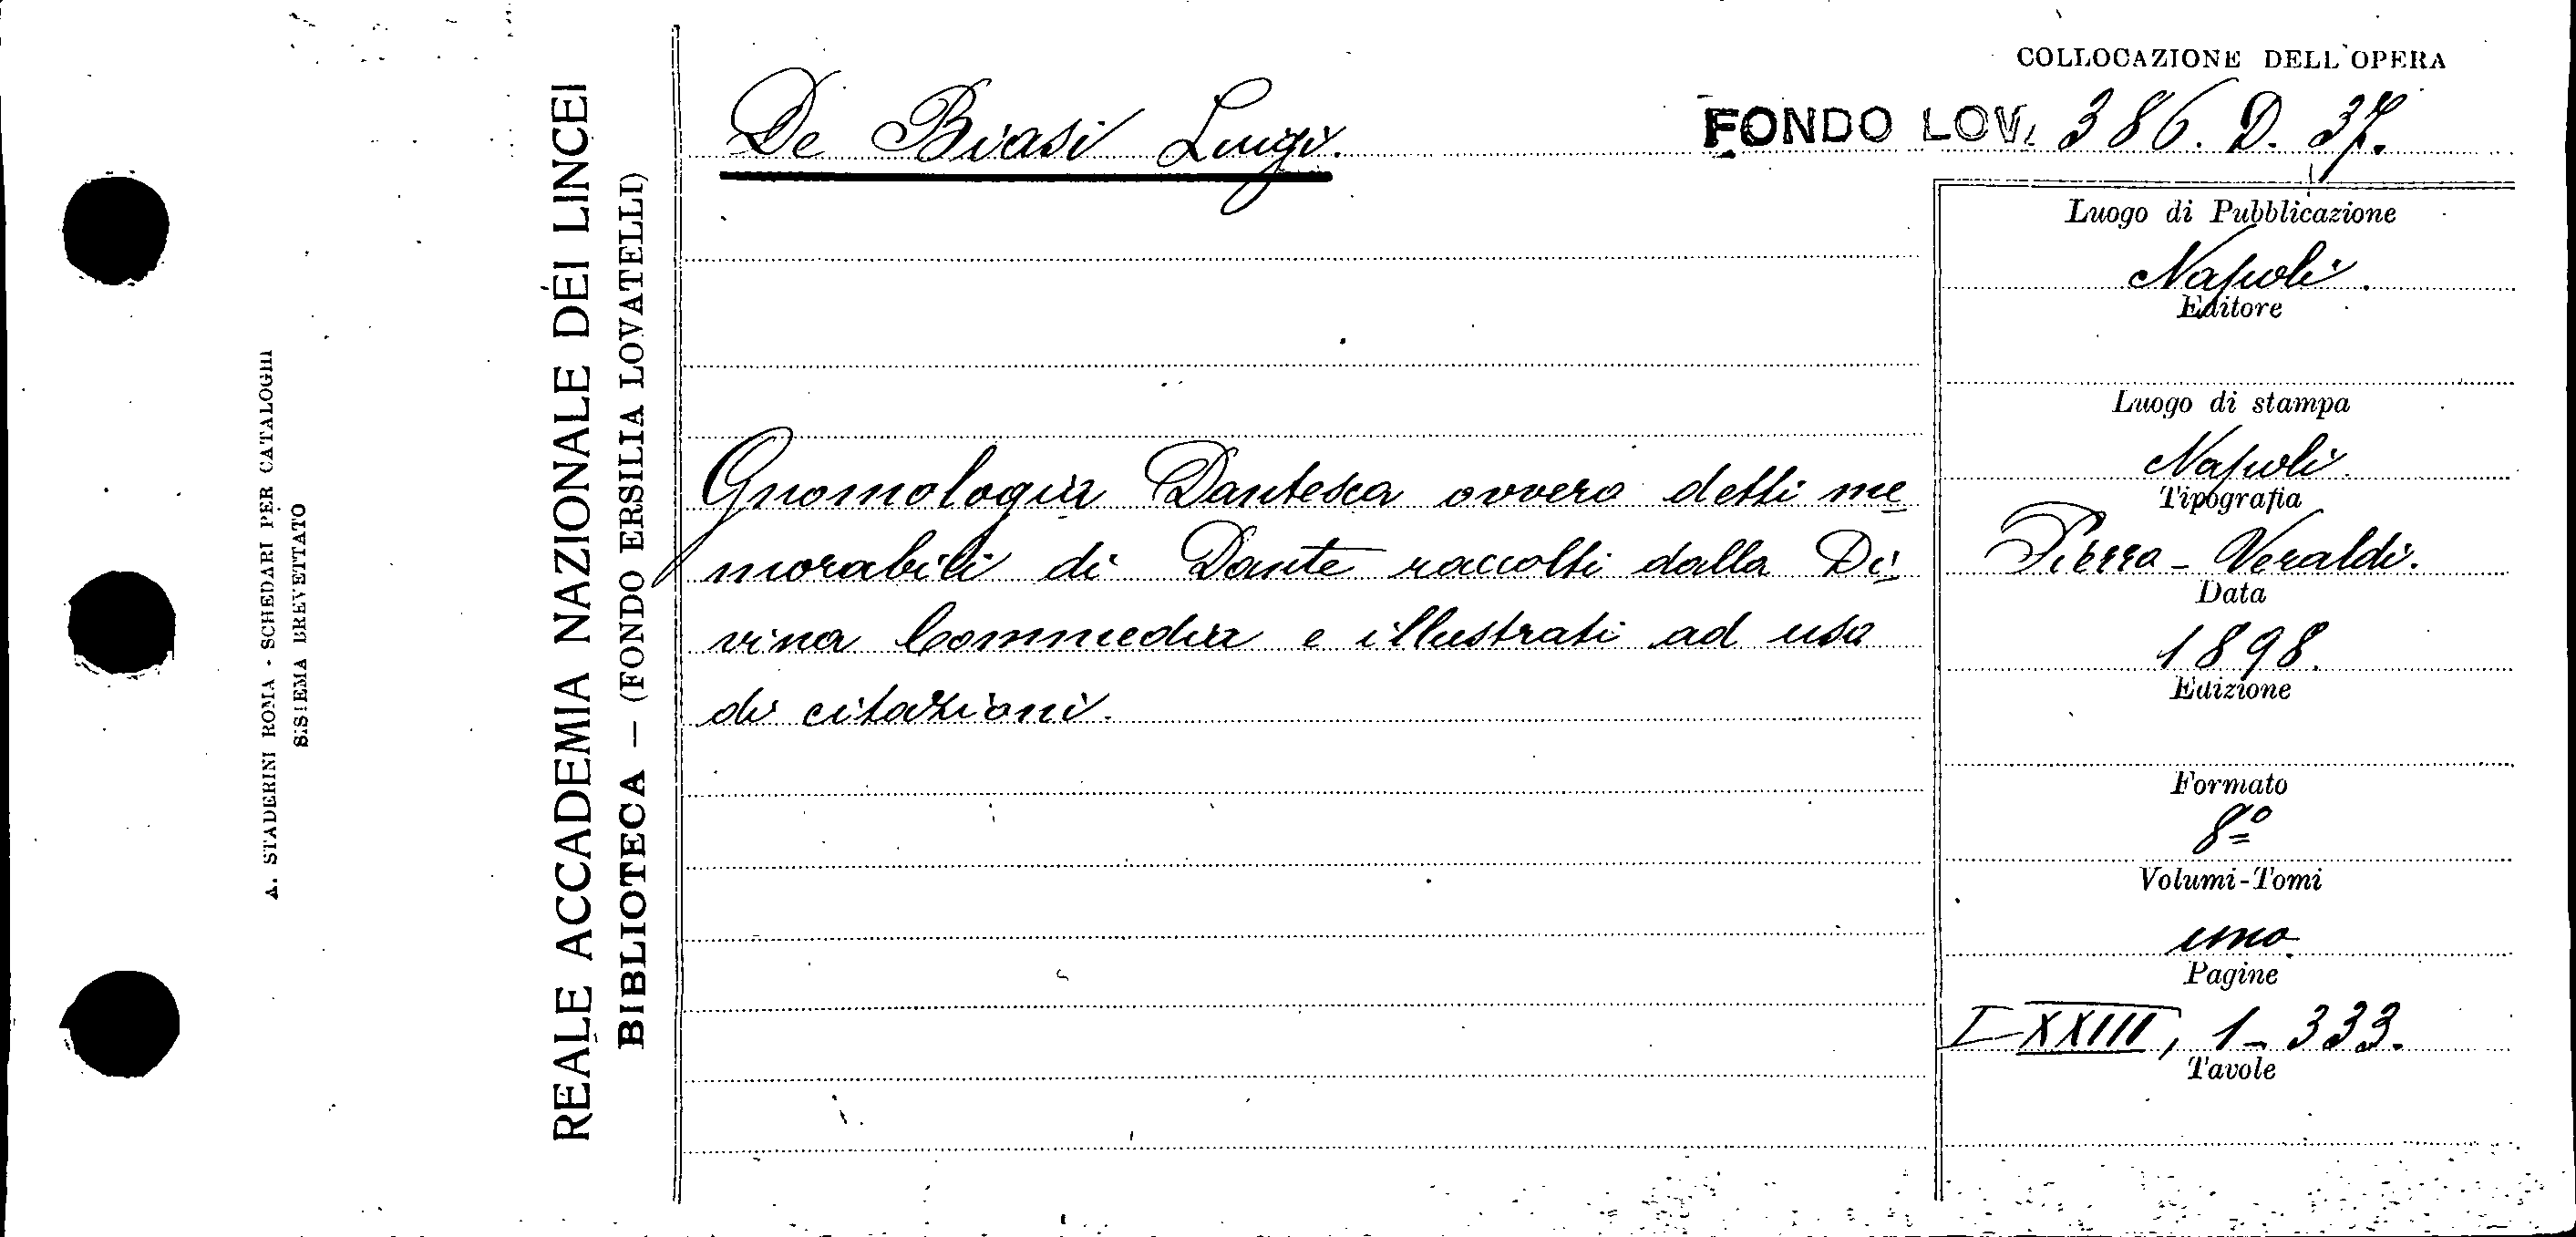 A. STADERINI ROMA - SCHEDARI PER CATALOGHI
SISTEMA BREVETTATO
REALE ACCADEMIA NAZIONALE DEI LINCEI
BIBLIOTECA — (FONDO ERSILIA LOVATELLI)
De Biasi Luigi.
COLLOCAZIONE DELL'OPERA
FONDO LOV. 386. D. 37.
Gnomologia Dantesca ovvero detti me
morabili di Dante raccolti dalla Di
vina Commedia e illustrati ad uso
di citazioni.
Luogo di Pubblicazione
Napoli.
Editore
Luogo di stampa
Napoli.
Tipografia
Pierro - Veraldi.
Data
1898.
Edizione
Formato
8º
Volumi-Tomi
uno
Pagine
I-XXIII, 1-333.
Tavole